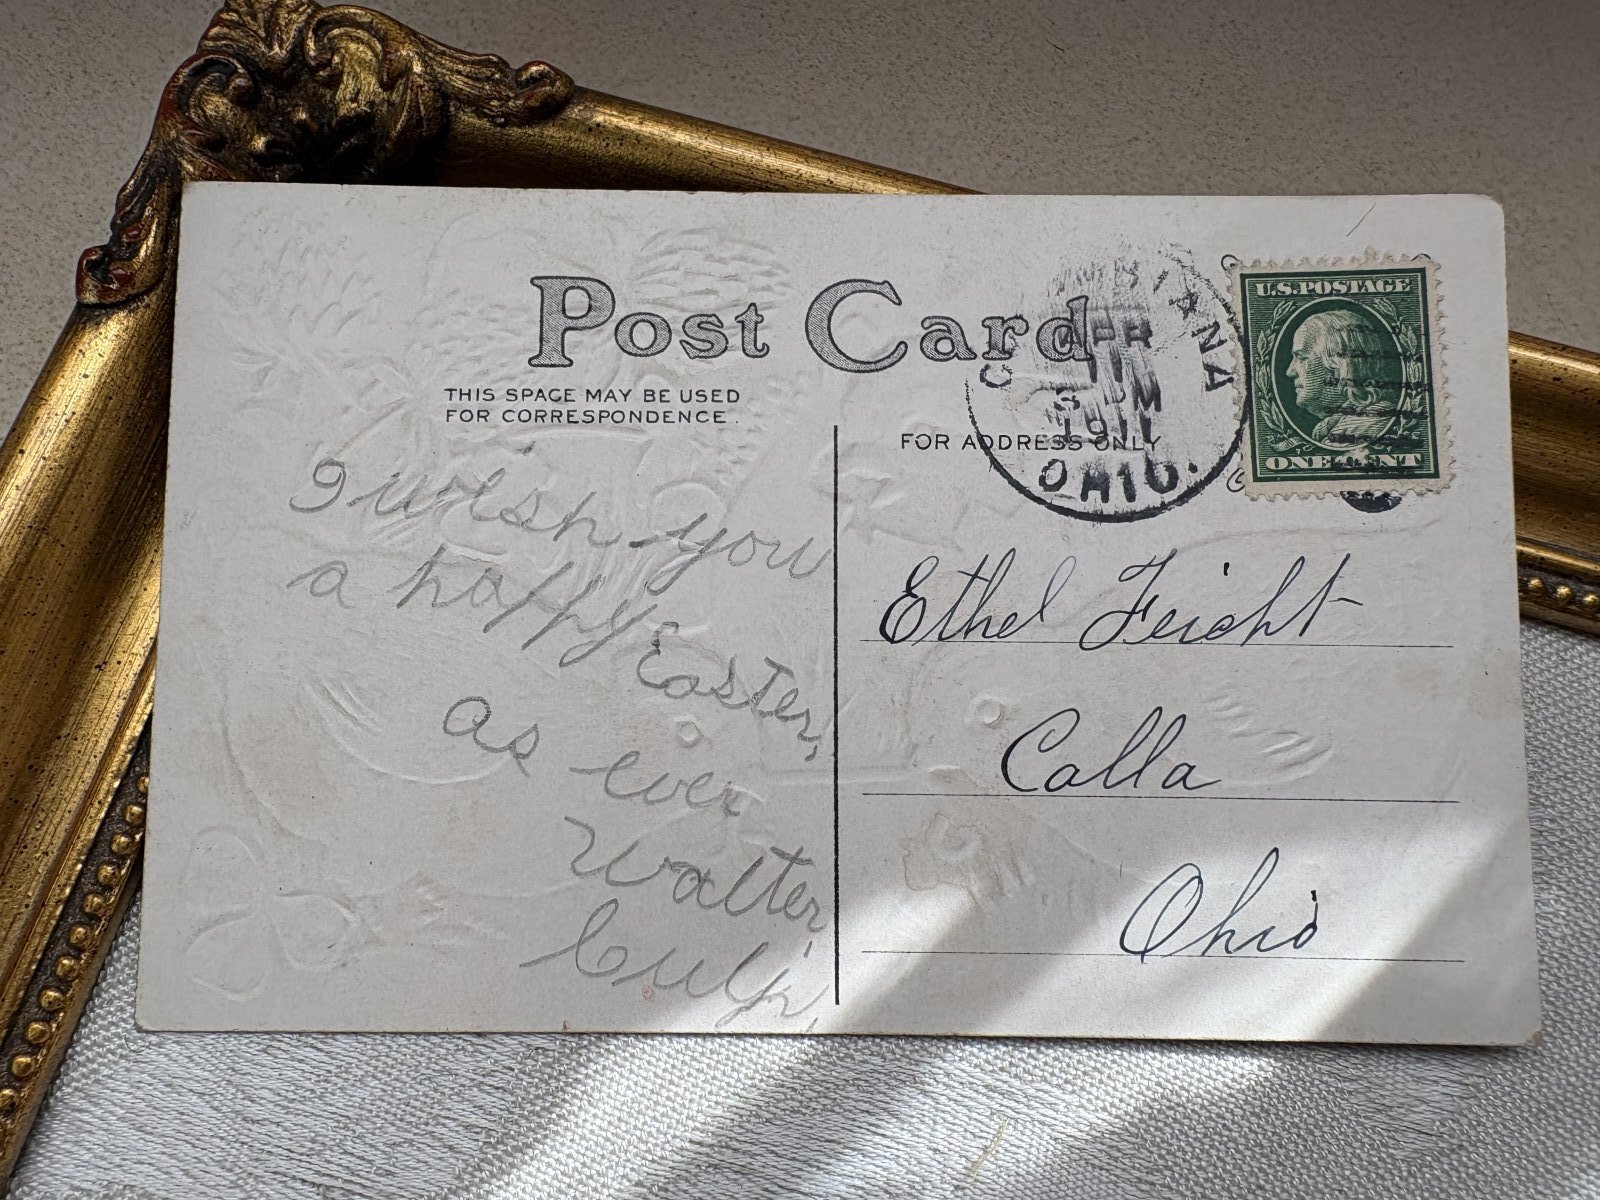 Post Card
THIS SPACE MAY BE USED
FOR CORRESPONDENCE.
FOR ADDRESS ONLY
APR
11
PM
1911
OHIO.
U.S. POSTAGE
ONE CENT
I wish you
a happy Easter,
as ever
Walter
Culp,
Ethel Feicht
Calla
Ohio